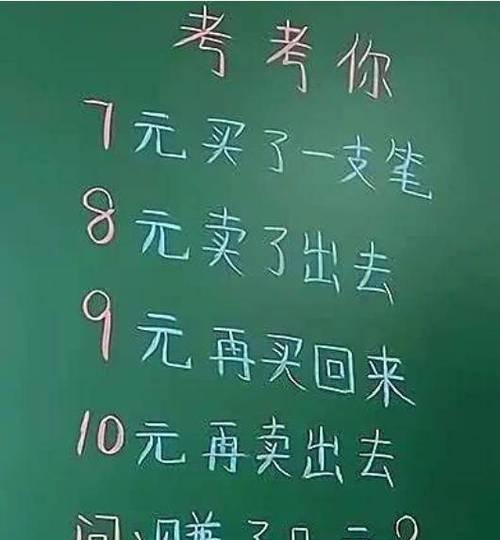 考考你
7元买了一支笔
8元卖了出去
9元再买回来
10元再卖出去
问:赚了几元?